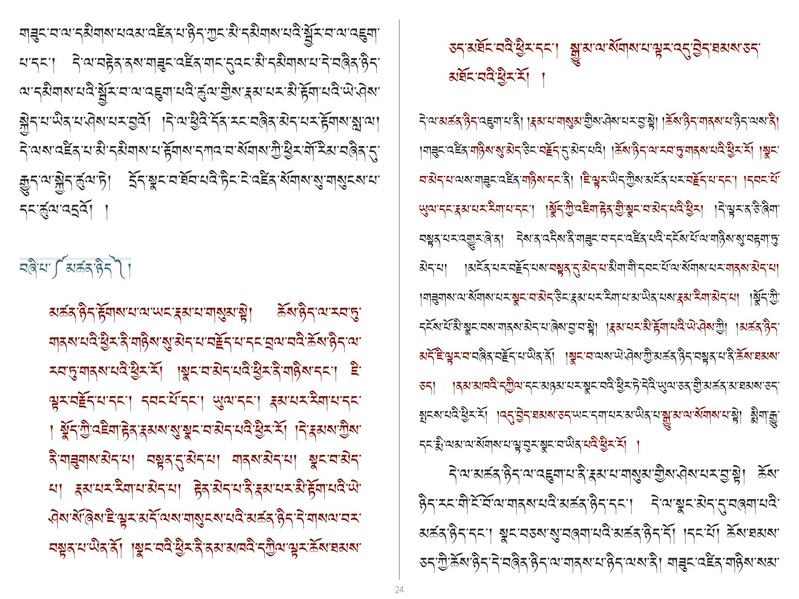 གཟུང་བ་ལ་དམིགས་པའམ་འཛིན་པ་ཉིད་ཀྱང་མི་དམིགས་པའི་སྦྱོར་བ་ལ་འཇུག་
པ་དང་། དེ་ལ་བརྟེན་ནས་གཟུང་འཛིན་གང་དུའང་མི་དམིགས་པ་དེ་བཞིན་ཉིད་
ལ་དམིགས་པའི་སྦྱོར་བ་ལ་འཇུག་པའི་ཚུལ་གྱིས་རྣམ་པར་མི་རྟོག་པའི་ཡེ་ཤེས་
སྐྱེད་པ་ཡིན་པ་ཤེས་པར་བྱའོ། །དེ་ལ་ཕྱིའི་དོན་རང་བཞིན་མེད་པར་རྟོགས་སླ་ལ།
དེ་ལས་འཛིན་པ་མི་དམིགས་པ་རྟོགས་དཀའ་བ་སོགས་ཀྱི་ཕྱིར་གོ་རིམ་བཞིན་དུ་
རྒྱུད་ལ་སྐྱེད་ཚུལ་ཏེ། དྲོད་སྣང་བ་ཐོབ་པའི་ཏིང་ངེ་འཛིན་སོགས་སུ་གསུངས་པ་
དང་ཚུལ་འདྲའོ། །
བཞི་པ་༼མཚན་ཉིད༽།
མཚན་ཉིད་རྟོགས་པ་ལ་ཡང་རྣམ་པ་གསུམ་སྟེ། ཆོས་ཉིད་ལ་རབ་ཏུ་
གནས་པའི་ཕྱིར་ནི་གཉིས་སུ་མེད་པ་བརྗོད་པ་དང་བྲལ་བའི་ཆོས་ཉིད་ལ་
རབ་ཏུ་གནས་པའི་ཕྱིར་རོ། །སྣང་བ་མེད་པའི་ཕྱིར་ནི་གཉིས་དང་། ཇི་
ལྟར་བརྗོད་པ་དང་། དབང་པོ་དང་། ཡུལ་དང་། རྣམ་པར་རིག་པ་དང་
། སྣོད་ཀྱི་འཇིག་རྟེན་རྣམས་སུ་སྣང་བ་མེད་པའི་ཕྱིར་རོ། །དེ་རྣམས་ཀྱིས་
ནི་གཟུགས་མེད་པ། བསྟན་དུ་མེད་པ། གནས་མེད་པ། སྣང་བ་མེད་
པ། རྣམ་པར་རིག་པ་མེད་པ། རྟེན་མེད་པ་ནི་རྣམ་པར་མི་རྟོག་པའི་ཡེ་
ཤེས་སོ་ཞེས་ཇི་ལྟར་མདོ་ལས་གསུངས་པའི་མཚན་ཉིད་དེ་གསལ་བར་
བསྟན་པ་ཡིན་ནོ། །སྣང་བའི་ཕྱིར་ནི་ནམ་མཁའི་དཀྱིལ་ལྟར་ཆོས་ཐམས་
ཅད་མཐོང་བའི་ཕྱིར་དང་། སྒྱུ་མ་ལ་སོགས་པ་ལྟར་འདུ་བྱེད་ཐམས་ཅད་
མཐོང་བའི་ཕྱིར་རོ། །
དེ་ལ་མཚན་ཉིད་འཇུག་པ་ནི། །རྣམ་པ་གསུམ་གྱིས་ཤེས་པར་བྱ་སྟེ། །ཆོས་ཉིད་གནས་པ་ཉིད་ལས་ནི།
།གཟུང་འཛིན་གཉིས་སུ་མེད་ཅིང་བརྗོད་དུ་མེད་པའི། །ཆོས་ཉིད་ལ་རབ་ཏུ་གནས་པའི་ཕྱིར་རོ། །སྣང་
བ་མེད་པ་ལས་གཟུང་འཛིན་གཉིས་དང་ནི། །ཇི་ལྟར་ཡིད་ཀྱིས་མངོན་པར་བརྗོད་པ་དང་། །དབང་པོ་
ཡུལ་དང་རྣམ་པར་རིག་པ་དང་། །སྣོད་ཀྱི་འཇིག་རྟེན་གྱི་སྣང་བ་མེད་པའི་ཕྱིར། །དེ་ལྟར་ན་ཅི་ཞིག་
བསྟན་པར་འགྱུར་ཞེ་ན། དེས་ན་འདིས་ནི་གཟུང་བ་དང་འཛིན་པའི་དངོས་པོ་ལ་གཉིས་སུ་བརྟག་ཏུ་
མེད་པ། །མངོན་པར་བརྗོད་པས་བསྟན་དུ་མེད་པ་མིག་གི་དབང་པོ་ལ་སོགས་པར་གནས་མེད་པ།
།གཟུགས་ལ་སོགས་པར་སྣང་བ་མེད་ཅིང་རྣམ་པར་རིག་པ་མ་ཡིན་པས་རྣམ་རིག་མེད་པ། །སྣོད་ཀྱི་
དངོས་པོ་མི་སྣང་བས་གནས་མེད་པ་ཞེས་བྱ་བ་སྟེ། །རྣམ་པར་མི་རྟོག་པའི་ཡེ་ཤེས་ཀྱི། །མཚན་ཉིད་
མདོ་ཇི་ལྟར་བ་བཞིན་བརྗོད་པ་ཡིན་ནོ། །སྣང་བ་ལས་ཡེ་ཤེས་ཀྱི་མཚན་ཉིད་བསྟན་པ་ནི་ཆོས་ཐམས་
ཅད། །ནམ་མཁའི་དཀྱིལ་དང་མཉམ་པར་སྣང་བའི་ཕྱིར་ཏེ་དེའི་ཡུལ་ཅན་གྱི་མཚན་མ་ཐམས་ཅད་
སྤངས་པའི་ཕྱིར་རོ། །འདུ་བྱེད་ཐམས་ཅད་ཡང་དག་པར་མ་ཡིན་པ་སྒྱུ་མ་ལ་སོགས་པ་སྟེ། སྨིག་རྒྱུ་
དང་རྨི་ལམ་ལ་སོགས་པ་ལྟ་བུར་སྣང་བ་ཡིན་པའི་ཕྱིར་རོ། །
དེ་ལ་མཚན་ཉིད་ལ་འཇུག་པ་ནི་རྣམ་པ་གསུམ་གྱིས་ཤེས་པར་བྱ་སྟེ། ཆོས་
ཉིད་རང་གི་ངོ་བོ་ལ་གནས་པའི་མཚན་ཉིད་དང་། དེ་ལ་སྣང་མེད་དུ་བཞག་པའི་
མཚན་ཉིད་དང་། སྣང་བཅས་སུ་བཞག་པའི་མཚན་ཉིད་དོ། །དང་པོ། ཆོས་ཐམས་
ཅད་ཀྱི་ཆོས་ཉིད་དེ་བཞིན་ཉིད་ལ་གནས་པ་ཉིད་ལས་ནི། གཟུང་འཛིན་གཉིས་སམ་
24